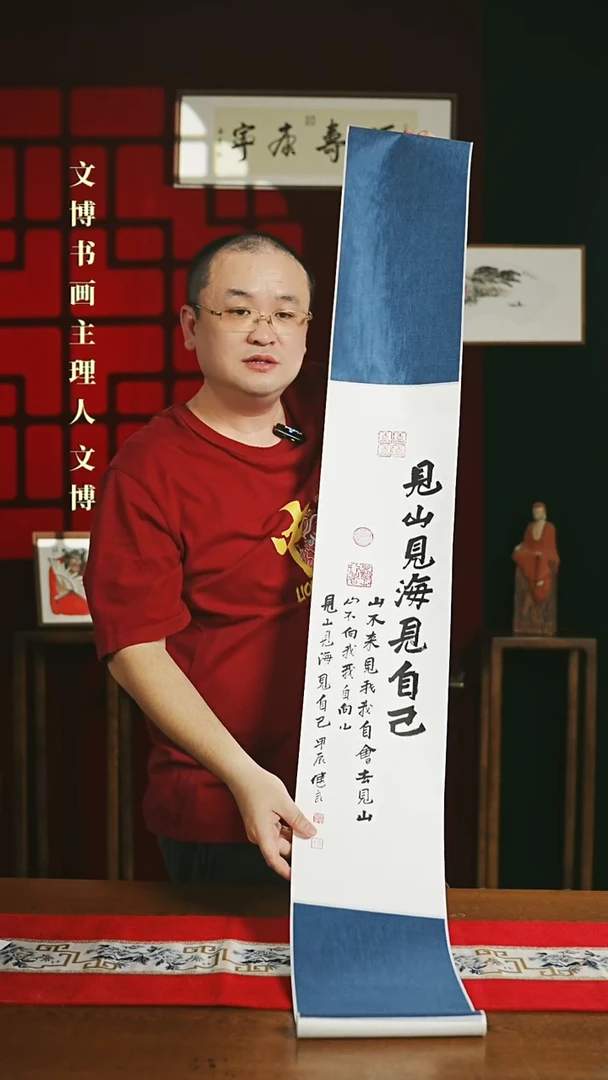 文博书画主理人 文博
壽康寧
見山見海見自己
山不来見我我自會去見山
心不向我我自向山
見山見海見自己 甲辰 健